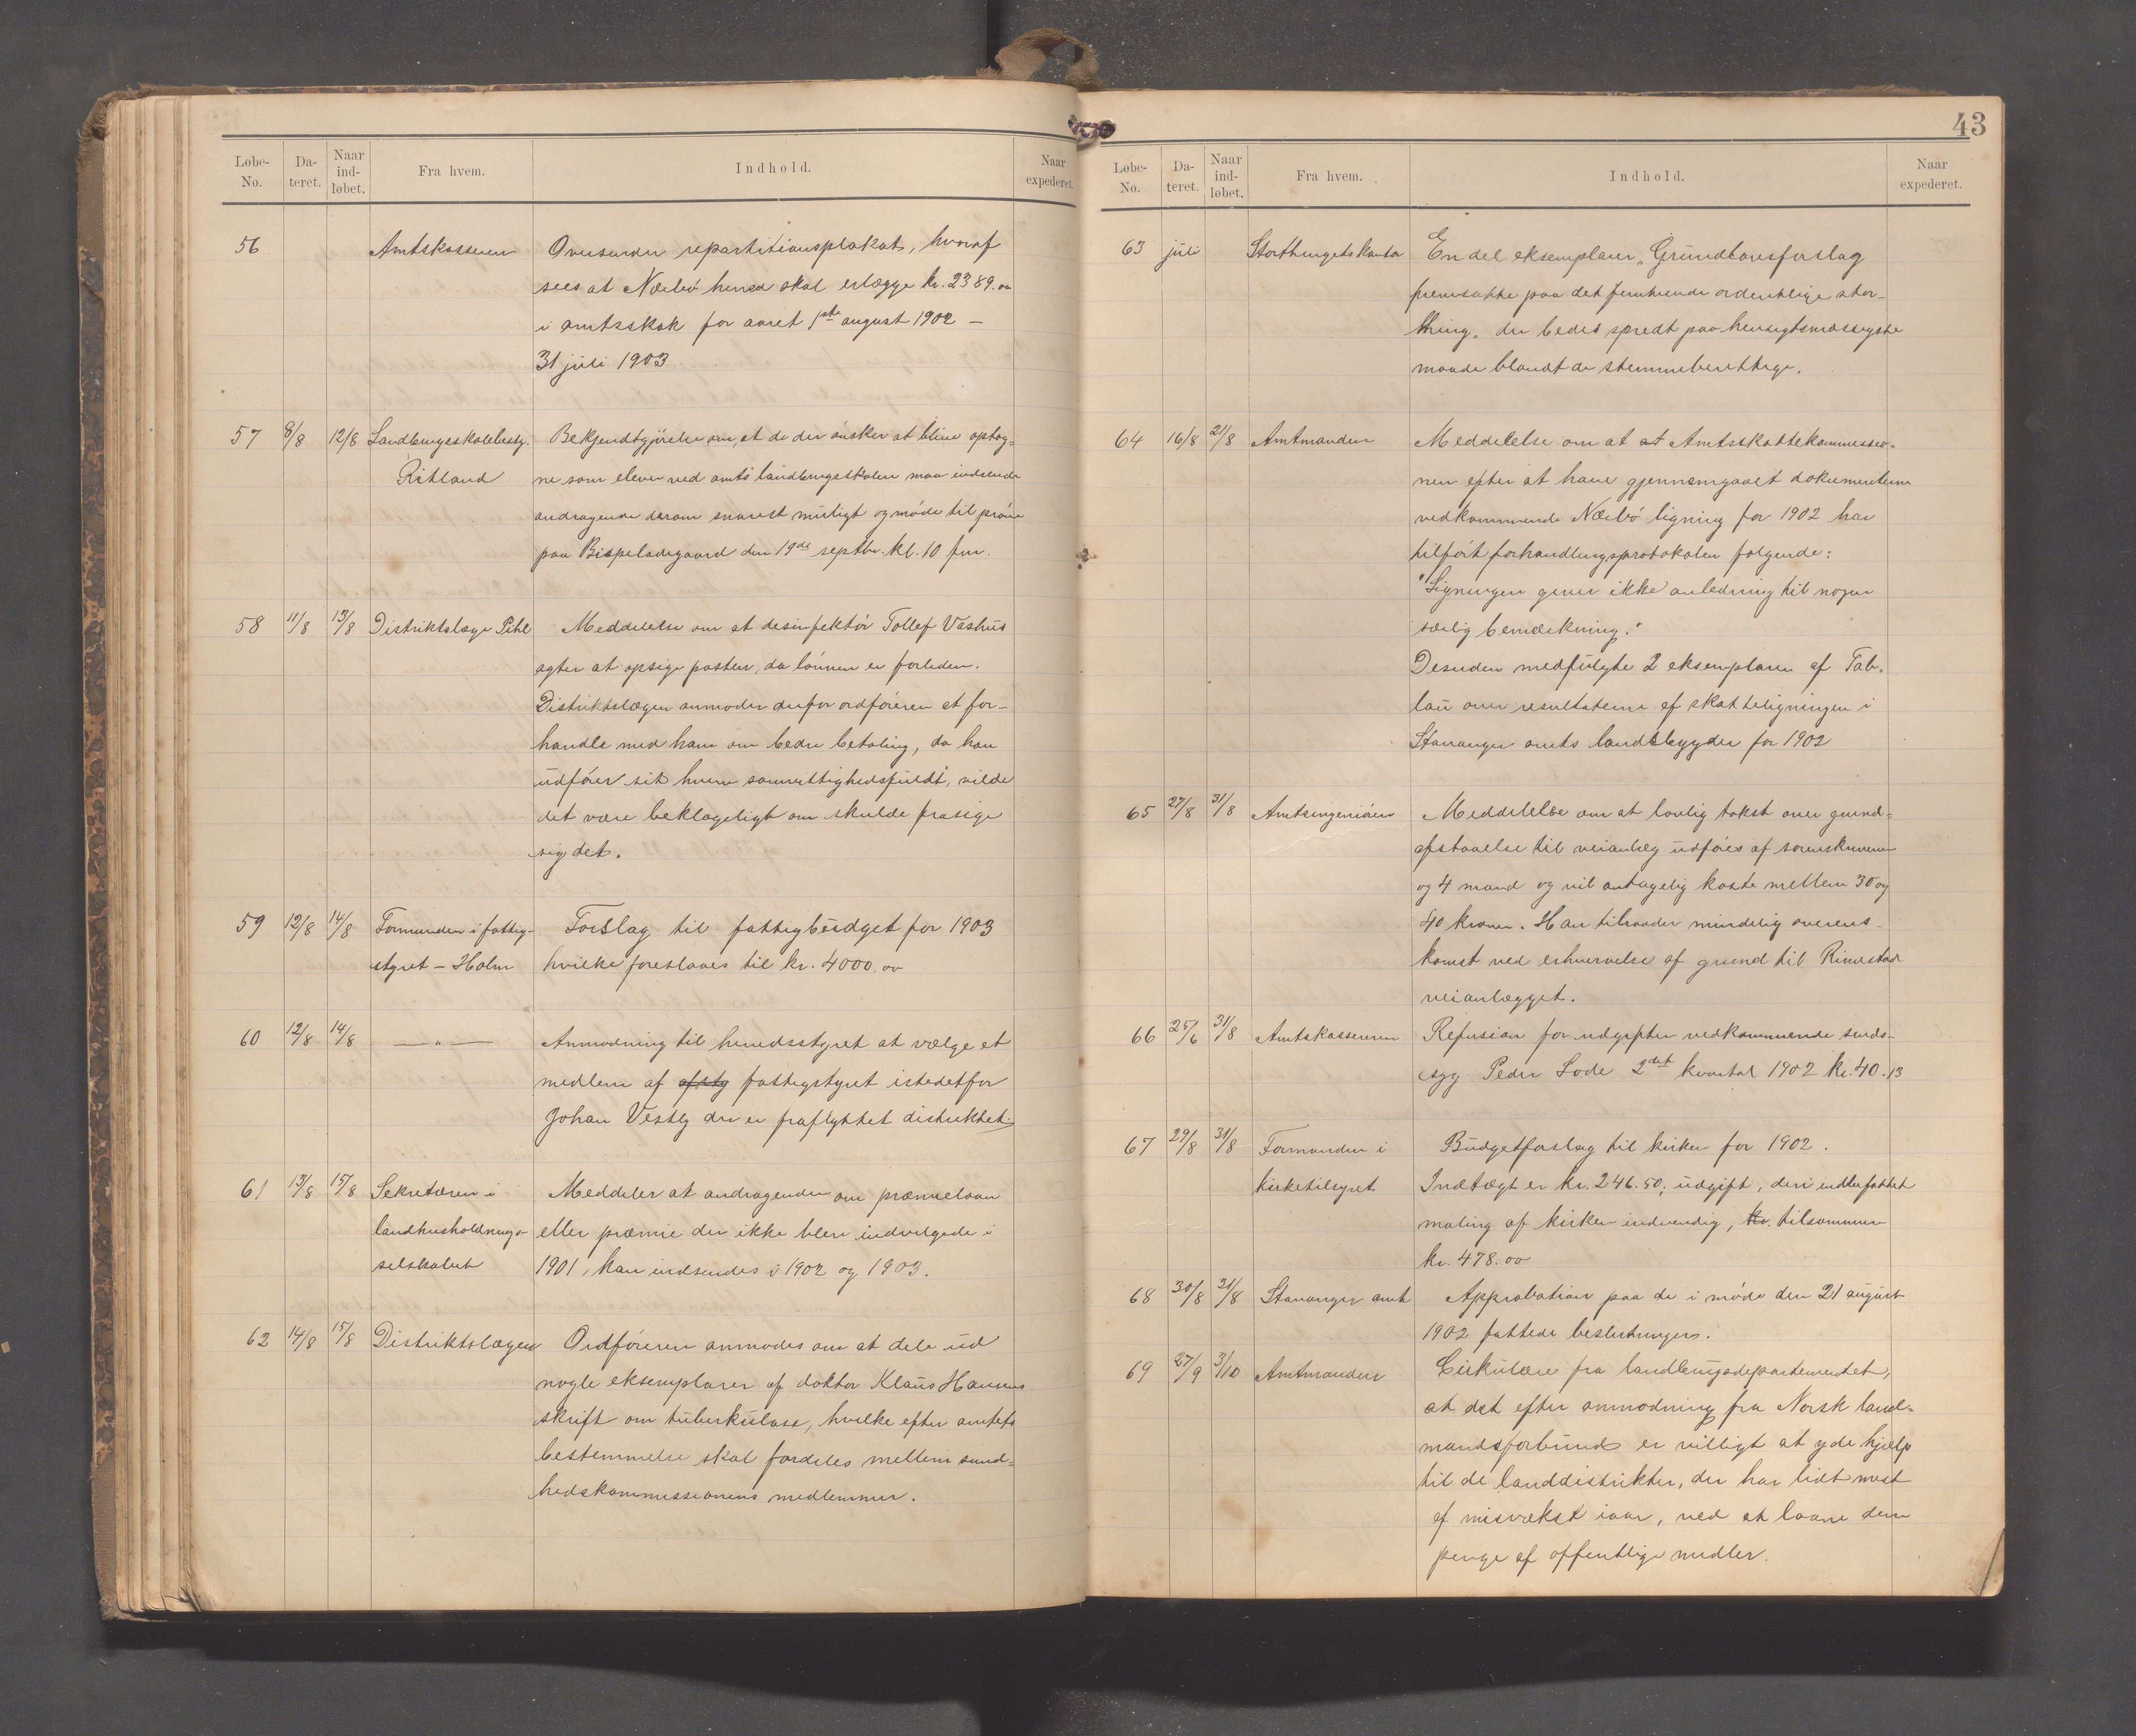 Løbe-No. Da-teret. Naar ind-løbet. Fra hvem. Indhold. Naar expederet.
56 Amtskasseren Oversender repartitionsplakat, hvoraf
sees at Nærbø herred skal erlægge kr. 2389.00
i amtsskat for aaret 1ste august 1902 –
31 juli 1903
57 8/8 12/8 Landbrugsskolebesty. Bekjendtgjørelse om, at de der ønsker at blive optag-
Ritland ne som elever ved amts landbrugsskolen maa indsende
andragende derom snarest muligt og møde til prøve
paa Bispeladegaard den 19de septbr. kl. 10 fm.
58 11/8 13/8 Distriktslæge Pihl Meddelelse om at desinfektør Tollef Vashus
agter at opsige posten, da lønnen er forliden.
Distriktslægen anmoder derfor ordføreren at for-
handle med ham om bedre betaling, da han
udfører sit hverv samvittighedsfuldt, vilde
det være beklageligt om skulde frasige
sig det.
59 12/8 14/8 Formanden i fattig- Forslag til fattigbudget for 1903
styret – Holm hvilke foreslaaes til kr. 4000.00
60 12/8 14/8 —„— Anmodning til herredsstyret at vælge et
medlem af afsty fattigstyret istedetfor
Johan Vestly der er fraflyttet distriktet.
61 13/8 15/8 Sekretæren i Meddeler at andragender om præmielaan
landhusholdnings- eller præmie der ikke blev indvilgede i
selskabet 1901, kan indsendes i 1902 og 1903.
62 14/8 15/8 Distriktslægen Ordføreren anmodes om at dele ud
nogle eksemplarer af doktor Klaus Hansens
skrift om tuberkulose, hvilke efter amtets
bestemmelse skal fordeles mellem sund-
hedskommissionens medlemmer.
43
Løbe-No. Da-teret. Naar ind-løbet. Fra hvem. Indhold. Naar expederet.
63 juli Storthingets kontor En del eksemplarer „Grundlovsforslag
fremsatte paa det femtiende ordentlige stor-
thing„ der bedes spredt paa hensigtsmæssigste
maade blandt de stemmeberettige.
64 16/8 21/8 Amtmanden Meddelelse om at at Amtsskattekommissio-
nen efter at have gjennemgaaet dokumenterne
vedkommende Nærbø ligning for 1902 har
tilført forhandlingsprotokolen følgende:
"Ligningen giver ikke anledning til nogen
særlig bemærkning."
Desuden medfulgte 2 eksemplarer af Tab-
lau over resultaterne af skatteligningen i
Stavanger amts landsbygder for 1902
65 27/8 31/8 Amtsingeniøren Meddelelse om at lovlig takst over grund-
afstaaelse til veianlæg udføres af sorenskriveren
og 4 mand og vil antagelig koste mellem 30 og
40 kroner. Han tilraader mindelig overens-
komst ved erhvervelse af grund til Rimestad
veianlægget.
66 25/6 31/8 Amtskassereren Refusion for udgifter vedkommende sinds-
syg Peder Lode 2det kvartal 1902 kr. 40.13
67 29/8 31/8 Formanden i Budgetforslag til kirken for 1902.
kirketilsynet Indtægt er kr. 246.50; udgift, deri indbefattet
maling af kirken indvendig, kr. tilsammen
kr. 478.00
68 30/8 31/8 Stavanger amt Approbation paa de i møde den 21 august
1902 fattede beslutninger.
69 27/9 3/10 Amtmanden Cirkulære fra landbrugsdepartementet,
at det efter anmodning fra Norsk land-
mandsforbund er villigt at yde hjælp
til de landdistrikter, der har lidt mest
af misvækst iaar, ved at laane dem
penge af offentlige midler.